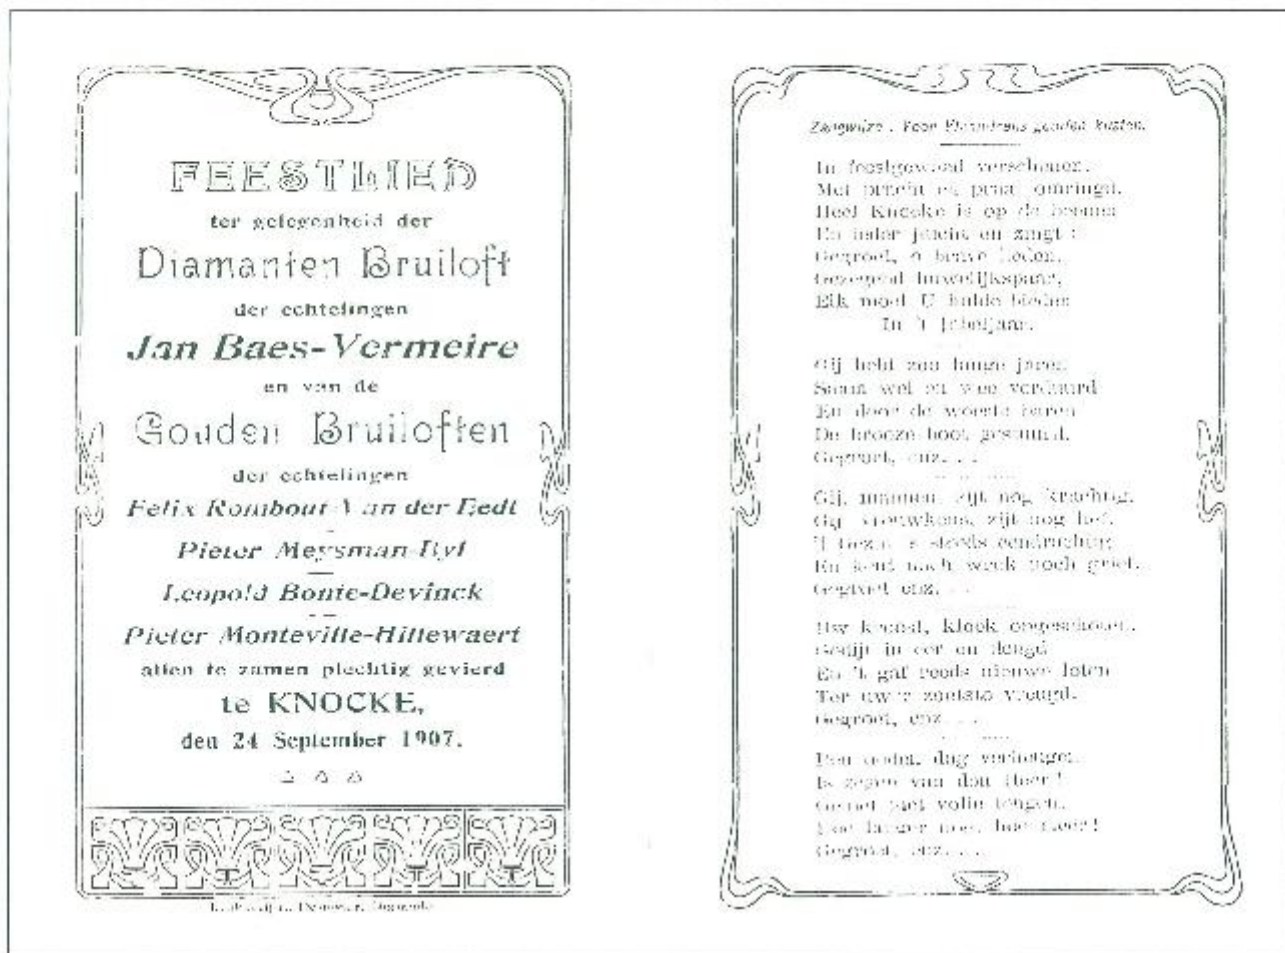 FEESTLIED
ter gelegenheid der
Diamanten Bruiloft
der echtelingen
Jan Baes-Vermeire
en van de
Gouden Bruiloften
der echtelingen
Felix Rombout-Van der Eedt
Pieter Meysman-Ryf
Leopold Bonte-Devinck
Pieter Monteville-Hillewaert
allen te zamen plechtig gevierd
te KNOCKE,
den 24 September 1907.
Zangwijze : Voor Vlaanderens gouden kusten.
In feestgewaad verschenen,
Met pracht en praal omringd,
Heel Knocke is op de beenen
En juicht en zingt :
Gegroet, o brave lieden,
Gezegend huwelijkspaar,
Elk moet U hulde bieden
In 't Jubeljaar.
Gij hebt zoo lange jaren
Saam wel en wee verduurd
En door de woeste baren
De brooze boot gestuurd.
Gegroet, enz. . .
Gij, mannen, zijt nog krachtig,
Gij vrouwkens, zijt nog lief,
't Gezin is steeds eendrachtig
En kent noch week noch grief.
Gegroet enz. . .
Uw kroost, kloek opgeschoten,
Gedijt in eer en deugd
En 't gaf reeds nieuwe loten
Ter uwer zoetste vreugd.
Gegroet, enz. . .
dag verheugen
Is zegen van den Heer !
Geniet met volle teugen,
Hoe langer nog hoe meer!
Gegroet, enz. . .